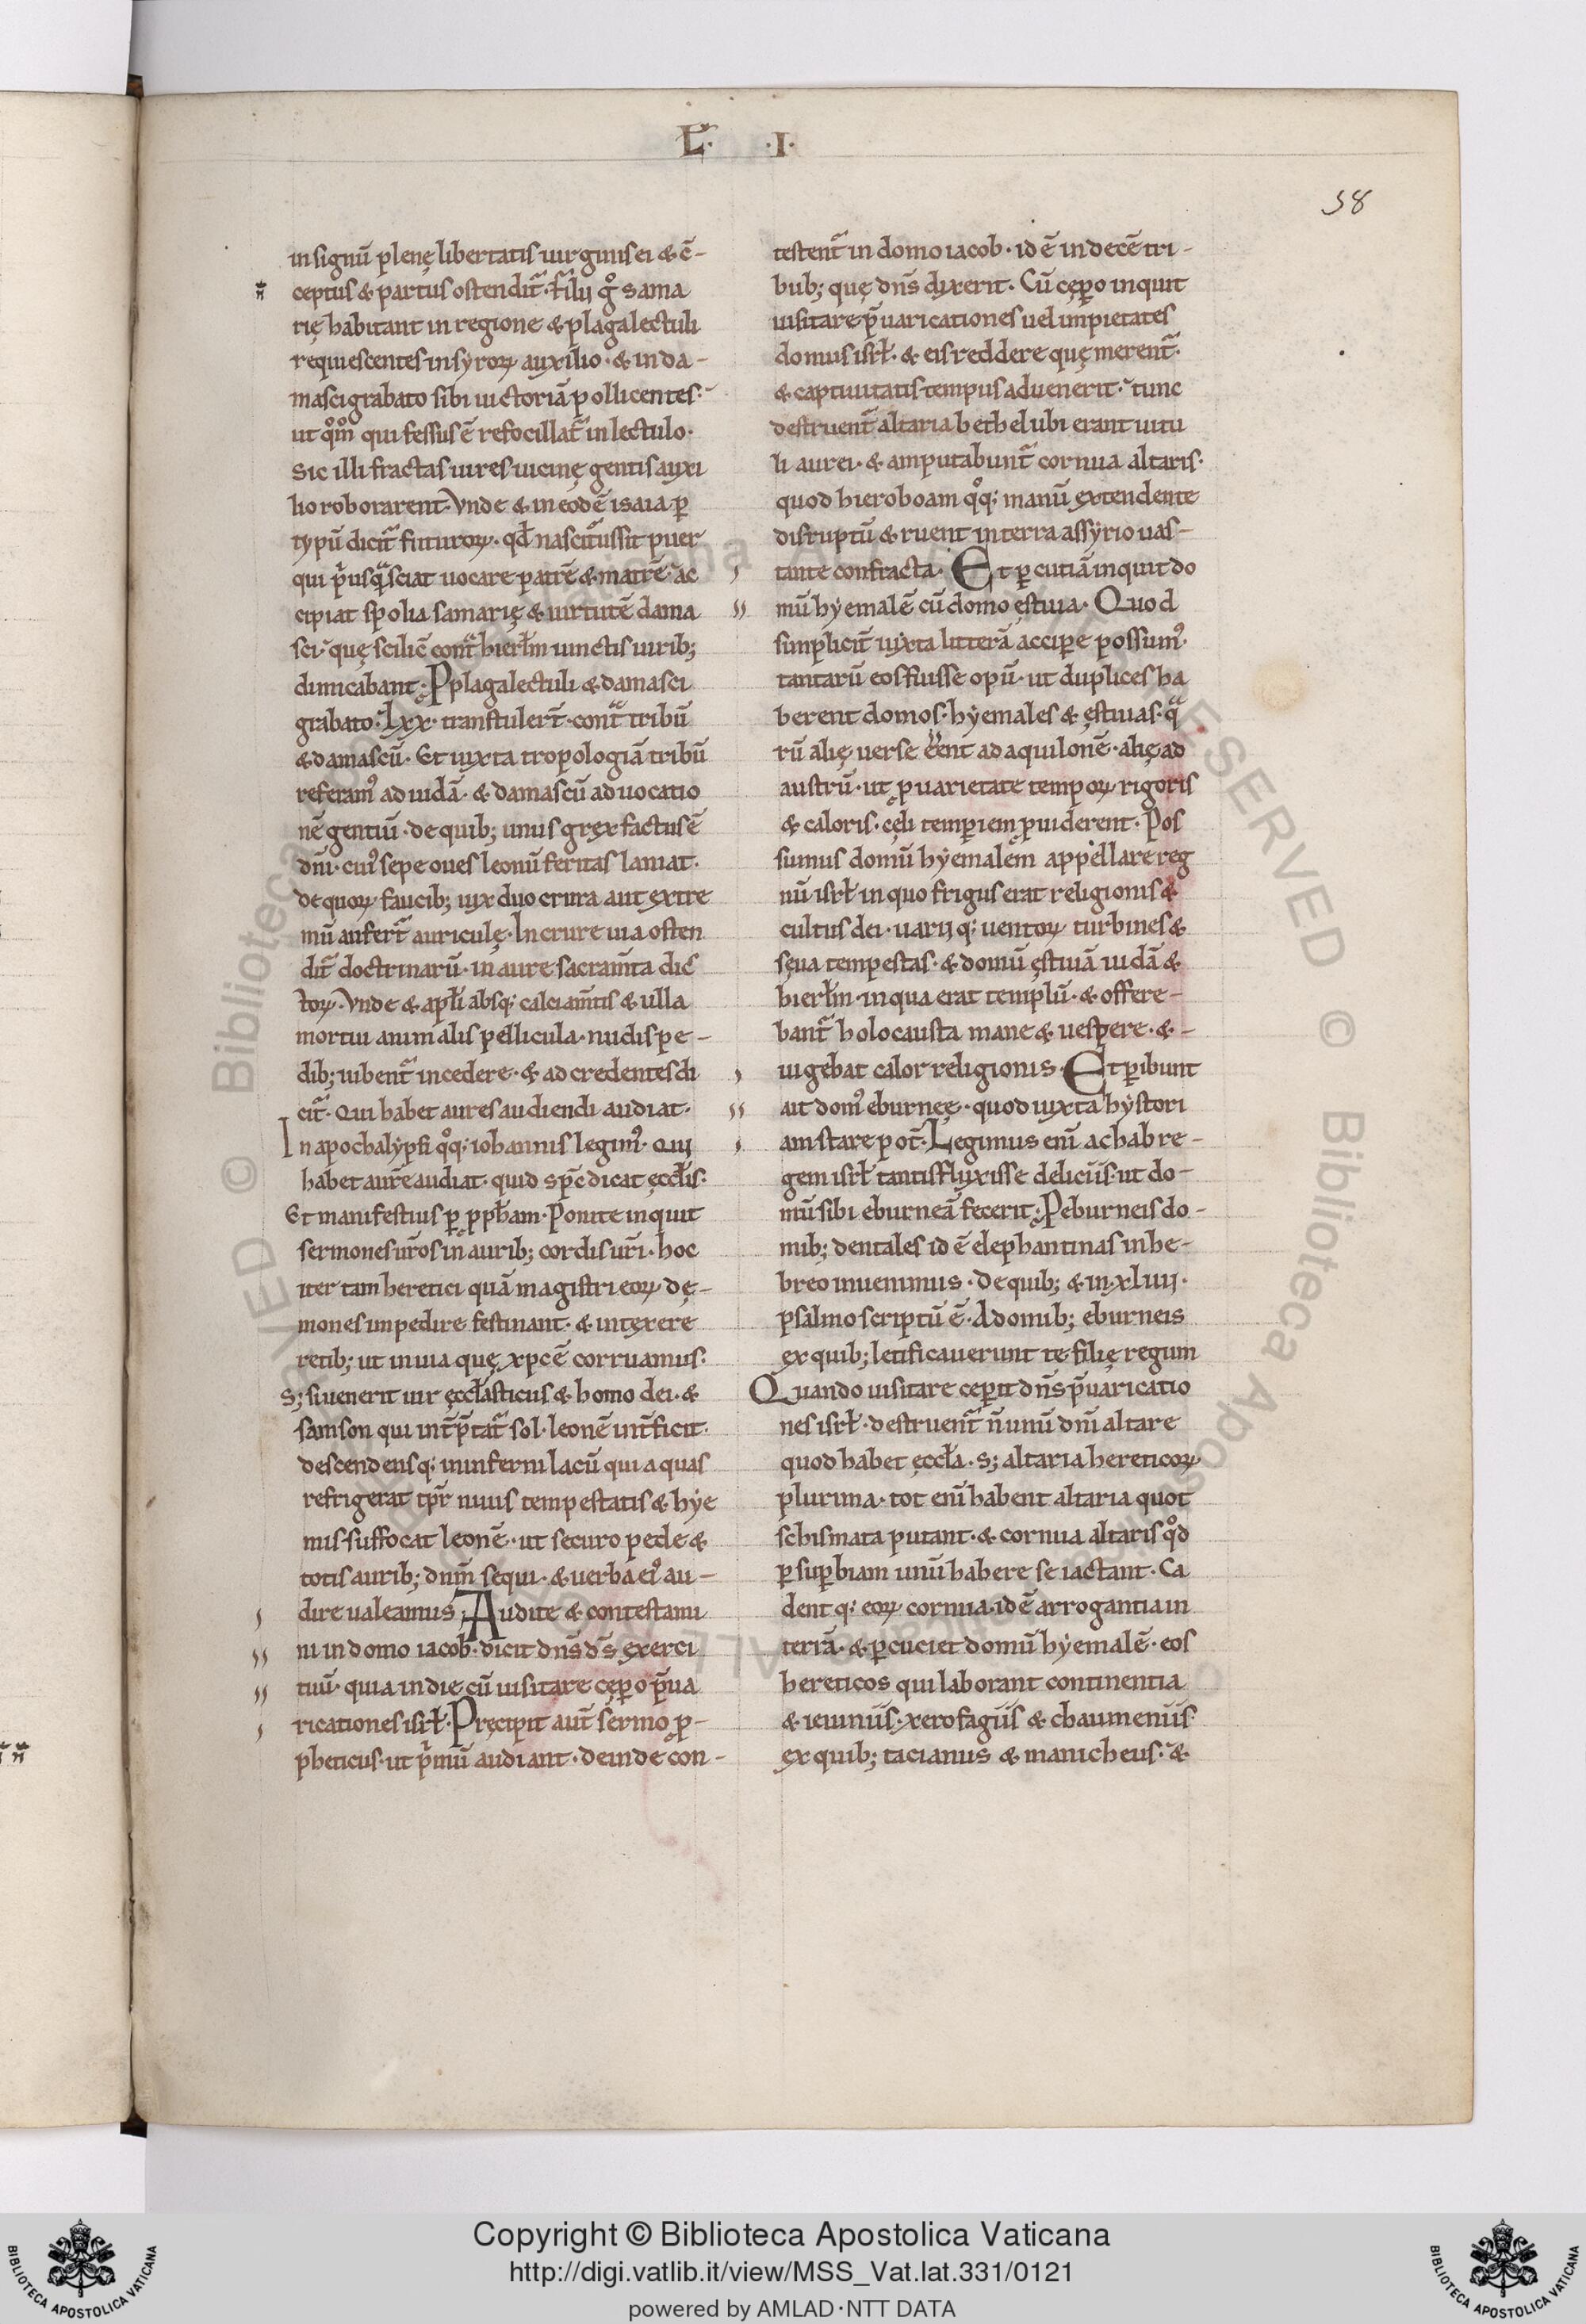 L̄· ·I·
58
in signū plenę libertatis uirginis ei & c̄-
ceptus & partus ostendit᷑. Filii g̊ sama
rię habitant in regione & plaga lectuli
requiescentes in syroꝝ auxilio· & in da-
masci grabato sibi uictoriā pollicentes·
ut qm̊ qui fessus ē refocillat᷑ in lectulo·
Sic illi fractas uires uicinę gentis auxi
lio roborarent. Vnde & in eodē isaia ꝑ
typū dicit᷑ futuroꝝ· qd̄ nascit᷑us sit puer
qui p̄usquā sciat uocare patrē & matrē· ac
cipiat spolia samarię & uirtutē dama
sci· quę scilic̄ cont᷑ hierl̄m iunctis uirib;
dimicabant· P plaga lectuli & damasci
grabato· Lxx· transtulert̄· cont᷑ tribū
& damascū· Et iuxta tropologiā tribū
referam᷒ ad iudā· & damascū ad uocatio
nē gentiū· de quib; unus grex factus ē
dn̄i· cui᷒ sepe oues leonū feritas laniat·
de quoꝝ faucib; uix duo crura aut extre
mū aufert᷑ auriculę· In crure uia osten
dit᷑ doctrinarū· in aure sacram̄ta dic̄
toꝝ· Vnde & apl̄i absq; calciam̄tis & ulla
mortui animalis pellicula· nudis pe-
dib; iubent᷑ incedere· & ad credentes di
cit᷑· Qui habet aures audiendi audiat·
In apochalypsi qq̊; iohannis legim᷒· Qui
habet aurē audiat· quid sp̄c dicat ęccl̄is·
Et manifestius ꝑ pph̄am· Ponite inquit
sermones ur̄os in aurib; cordis ur̄i· hoc
iter tam heretici quā magistri eoꝝ dę-
mones impedire festinant· & intexere
retib; ut in uia quę xp̄c ē corruamus·
S; si uenerit uir ęccl̄asticus & homo dei· &
samson qui int̄p̄tat᷑ sol· leonē int̄ficit·
descendensq; in inferni lacū qui aquas
refrigerat tp̄r niuis tempestatis & hye
mis suffocat leonē· ut securo pede &
totis aurib; dn̄m sequi· & uerba ei᷒ au-
dire ualeamus; Audite & contestami
ni in domo iacob· dicit dn̄s d̄s exerci
tuū· quia in die cū uisitare cęꝑo p̄ua
ricationes isrl̄· Pręcipit aut̄ sermo ꝓ-
pheticus· ut p̄mū audiant· deinde con-
testent᷑ in domo iacob· id ē in decē tri-
bub; quę dn̄s dixerit· Cū cęꝑo inquit
uisitare p̄uaricationes uel impietates
domus isrl̄· & eis reddere quę merent᷑·
& captiuitatis tempus aduenerit· tunc
destruent᷑ altaria bethel ubi erant uitu
li aurei· & amputabunt᷑ cornua altaris·
quod hieroboam qq̊; manū extendente
disruptū & ruent in terra assyrio uas-
tante confracta· Et ꝑcutiā inquit do
mū hyemalē cū domo ęstiua· Quod
simplicit᷑ iuxta litterā acciꝑe possum᷒·
tantarū eos fuisse opū· ut duplices ha
berent domos· hyemales & ęstiuas· qa̅
rū alię uerse eēnt ad aquilonē· alię ad
austrū· ut ꝓ uarietate tempoꝝ rigoris
& caloris· cęli temꝑiem ꝓuiderent· Pos
sumus domū hyemalem appellare reg
nū isrl̄ in quo frigus erat religionis &
cultus dei· uariiq; uentoꝝ turbines &
sęua tempestas· & domū ęstiuā iudā &
hierl̄m· in qua erat templū· & offere-
bant᷑ holocausta mane & uespere· &-
uigebat calor religionis· Et ꝑibunt
ait dom᷒ eburnęę· quod iuxta hystori
am stare pot̄· Legimus eni᷑ achab re-
gem isrl̄ tantis fluxisse deliciis· ut do-
mū sibi eburneā fecerit· P eburneis do-
mib; dentales id ē elephantinas in he-
breo inuenimus· de quib; & in xliiii·
psalmo scriptū ē· A domib; eburneis
ex quib; letificauerunt te filię regum
Quando uisitare ceꝑit dn̄s p̄uaricatio
nes isrl̄· destruent᷑ n̄ unū dn̄i altare
quod habet ęccl̄a· s; altaria hereticoꝝ
plurima· tot eni᷑ habent altaria quot
schismata putant· & cornua altaris qd̊
ꝑ suꝑbiam unū habere se iactant· Ca
dentq; eoꝝ cornua· id ē arrogantia in
terrā· & ꝑcuciet domū hyemalē· eos
hereticos qui laborant continentia
& ieiuniis· xerofagiis & chaumeniis·
ex quib; tacianus & manicheus· &
Copyright © Biblioteca Apostolica Vaticana
http://digi.vatlib.it/view/MSS_Vat.lat.331/0121
powered by AMLAD·NTT DATA